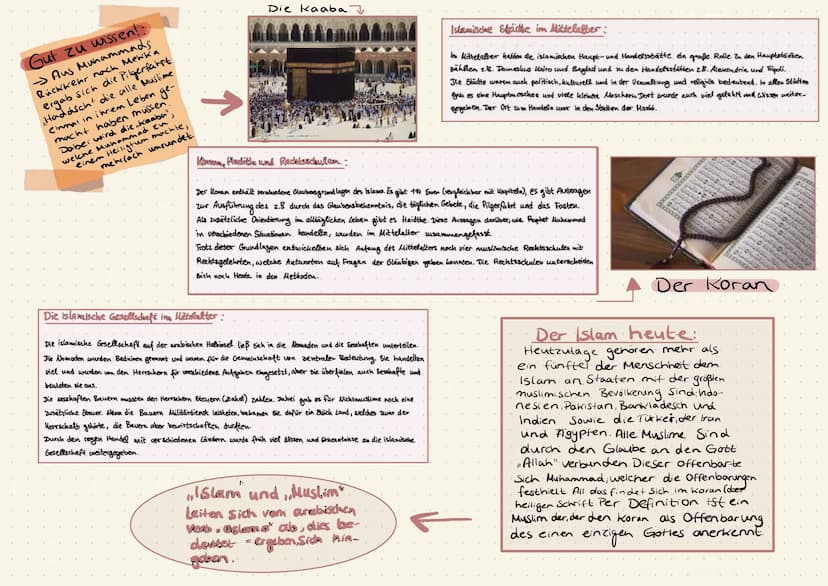 Gut zu wissen!:
→ Aus Muhammads
Rückkehr nach Mekka
ergab sich die Pilgerfahrt
"Haddsch" die alle Muslime
einmal in ihrem Leben ge-
macht haben müssen.
Dabei wird die Kaaba,
welche Muhammad zu
einem Heiligtum machte,
mehrfach umrundet
Die Kaaba
Islamische Städte im Mittelalter:
Im Mittelalter hatten die islamischen Haupt- und Handelsstädte ein große Rolle zu den Hauptstädten
zählten z.B. Damaskus Kairo und Bagdad und zu den Handelsstädten z.B. Alexandria und Tripoli.
Die Städte waren auch politisch, kulturell und in der Verwaltung und religiös bedeutend. In allen Städten
gab es eine Hauptmoschee und viele kleinere Moscheen. Dort wurde auch viel gelehrt und Wissen weiter-
gegeben. Der Ort zum Handeln war in den Städten der Markt.
Koran, Hadithe und Rechtsschulen:
Der Koran enthält verschiedene Glaubensgrundlagen des Islams. Es gibt 114 Suren (vergleichbar mit Kapiteln), es gibt Aussagen
zur Ausführung des z.B durch das Glaubensbekenntnis, die täglichen Gebete, die Pilgerfahrt und das Fasten.
Als zusätzliche Orientierung im alltäglichen Leben gibt es Hadithe. Diese Aussagen darüber, wie Prophet Muhammed
in verschiedenen Situationen handelte, wurden im Mittelalter zusammengefasst.
Trotz dieser Grundlagen entwickelten sich Anfang des Mittelalters noch vier muslimische Rechtsschulen mit
Rechtsgelehrten, welche Antworten auf Fragen der Gläubigen geben konnten. Die Rechtsschulen unterscheiden
sich noch Heute in den Methoden.
Der Koran
Die islamische Gesellschaft im Mittelalter:
Die islamische Gesellschaft auf der arabischen Halbinsel ließ sich in die Nomaden und die Sesshaften unterteilen.
Die Nomaden wurden Beduinen genannt und waren für die Gemeinschaft von zentraler Bedeutung. Sie handelten
viel und wurden von den Herrschern für verschiedene Aufgaben eingesetzt, aber sie überfielen auch Sesshafte und
beuteten sie aus.
Die sesshaften Bauern mussten den Herrschern Steuern (Zakat) zahlen. Dabei gab es für Nichtmuslime noch eine
zusätzliche Steuer. Wenn die Bauern Militärdienst leisteten, bekamen sie dafür ein Stück Land, welches zwar der
Herrschaft gehörte, die Bauern aber bewirtschaften durften.
Durch den regen Handel mit verschiedenen Ländern wurde früh viel Wissen und Erkenntnisse an die islamische
Gesellschaft weitergegeben.
Der Islam heute:
Heutzutage gehören mehr als
ein fünftel der Menschheit dem
Islam an. Staaten mit der größten
muslimischen Bevölkerung sind: Indo-
nesien, Pakistan, Bangladesch und
Indien sowie die Türkei, der Iran
und Ägypten. Alle Muslime sind
durch den Glaube an den Gott
"Allah" verbunden. Dieser offenbarte
sich Muhammad, welcher die Offenbarungen
festhielt. All das findet sich im Koran (der
heiligen Schrift. Per Definition ist ein
Muslim der, der den Koran als Offenbarung
des einen einzigen Gottes anerkennt.
"Islam" und "Muslim"
leiten sich vom arabischen
Verb "aslama" ab, dies be-
deutet = ergeben, sich hin-
geben.